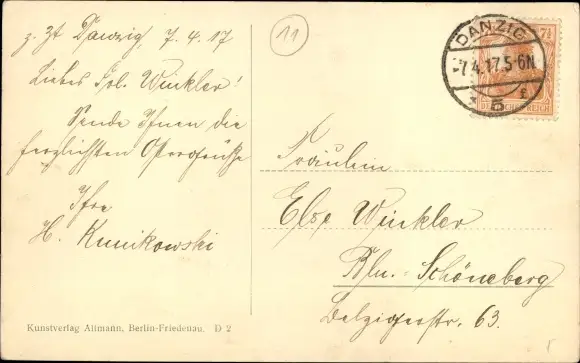 z. Zt Danzig, 7. 4. 17
Liebes Frl. Winkler!
Sende Ihnen die
herzlichsten Ostergrüße
Ihre
H. Kunikowski
Kunstverlag Altmann, Berlin-Friedenau. D 2
11
DANZIG
-7.4.17.5-6N
5
f
7½
DEUTSCHES REICH
Fräulein
Else Winkler
Bln.-Schöneberg
Belzigerstr. 63.